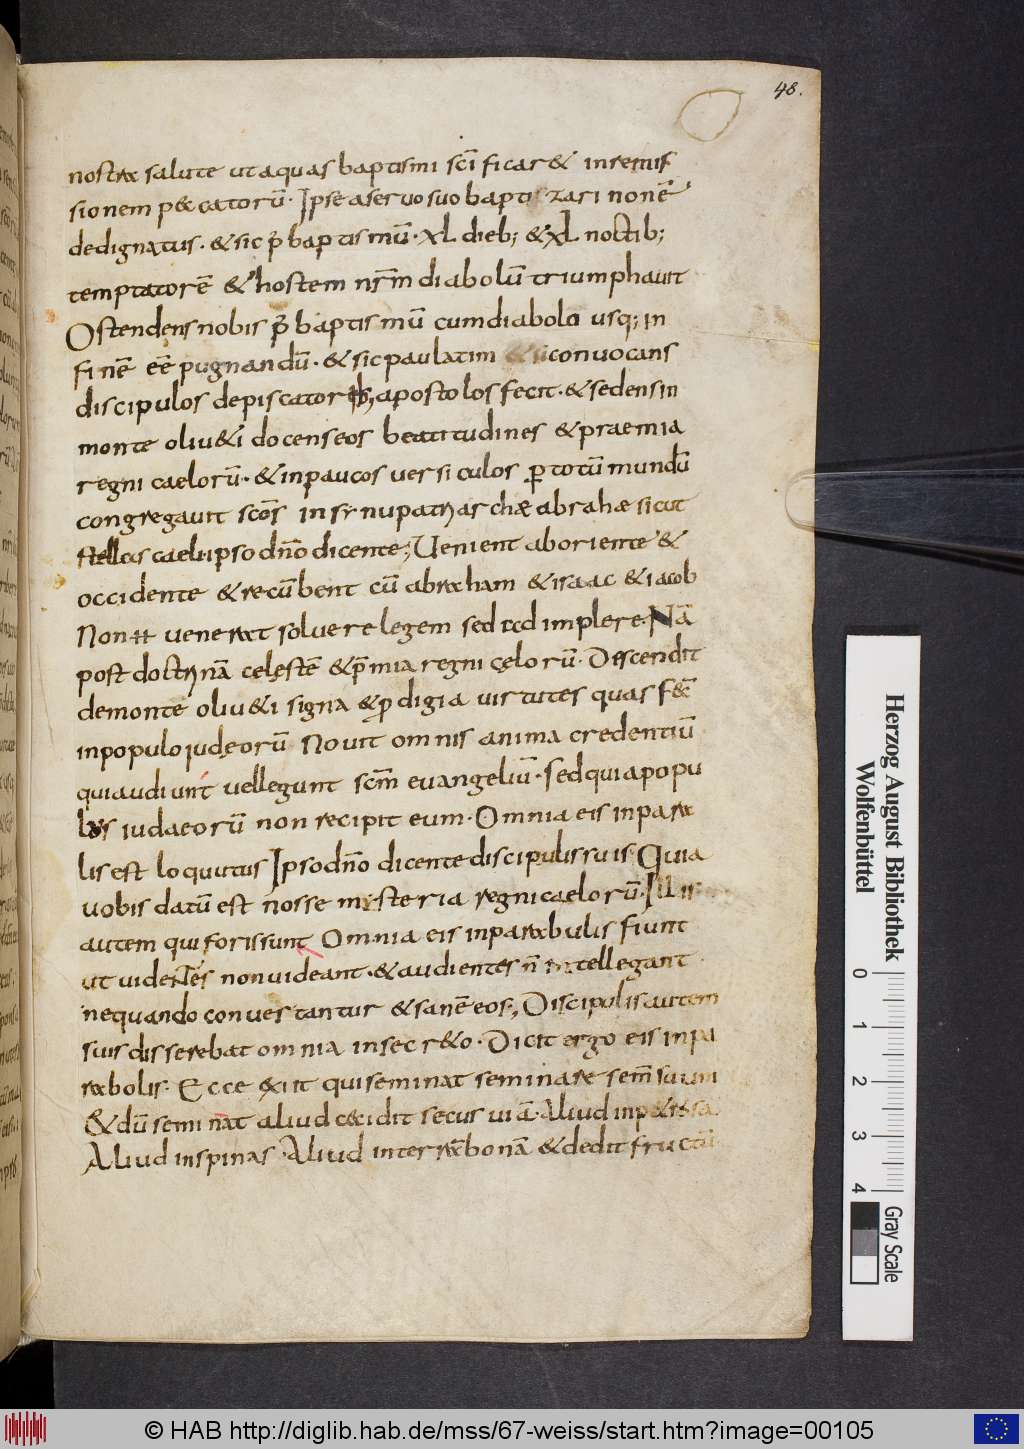 48.
nostrae salute ut aquas baptismi scificar& inremis
sionem p&catorū. Ipse aseruosuo baptizari nonē
dedignatus. & sic p̄ baptismū. XL dieb; & XL noctib;
temptatorē & hostem nr̄m diabolū triumphauit
Ostendens nobis p̄ baptismū cum diabolo usq; in
finē eē pugnandū. & sic paulatim conuocans
discipulos depiscatorib; apostolos fecit. & sedens in
monte oliu&i docens eos beatitudines & praemia
regni caelorū. & inpaucos uersiculos ꝑ totū mundū
congregauit scōs insynu patriarchæ abrahæ sicut
stellas caeli ipso dn̄o dicente; Uenient aboriente &
occidente & recūbent cū abraham & isaac & iacob
Non uenerat soluere legem sed adimplere. Nā
post doctrinā cęlestē & p̄mia regni cęlorū. Descendit
demonte oliu&i signa & ꝓdigia uirtutes quas fec̄
inpopulo iudęorū Nouit omnis anima credentiū
qui audiunt uel legunt scm̄ euangeliū. Sed quia popu
lus iudaeorū non recipit eum. Omnia eis inpara
lis est loquutus Ipso dn̄o dicente discipulis suis. Quia
uobis datū est nosse mysteria regni caelorū. Illis
autem qui foris sunt Omnia eis inparabulis fiunt
ut uidentes non uideant. & audientes n̄ intellegant
nequando conuertantur & sanē eos; Discipulis autem
suis disserebat omnia insecr&o. Dicit ergo eis inpa
rabolis. Ecce exiit qui seminat seminare sem̄ suum
& dū seminat aliud cecidit secus uiā. Aliud inp&rosa
Aliud inspinas. Aliud interrā bonā & dedit fructū
Herzog August Bibliothek
Wolfenbüttel
0 1 2 3 4
Gray Scale
© HAB http://diglib.hab.de/mss/67-weiss/start.htm?image=00105